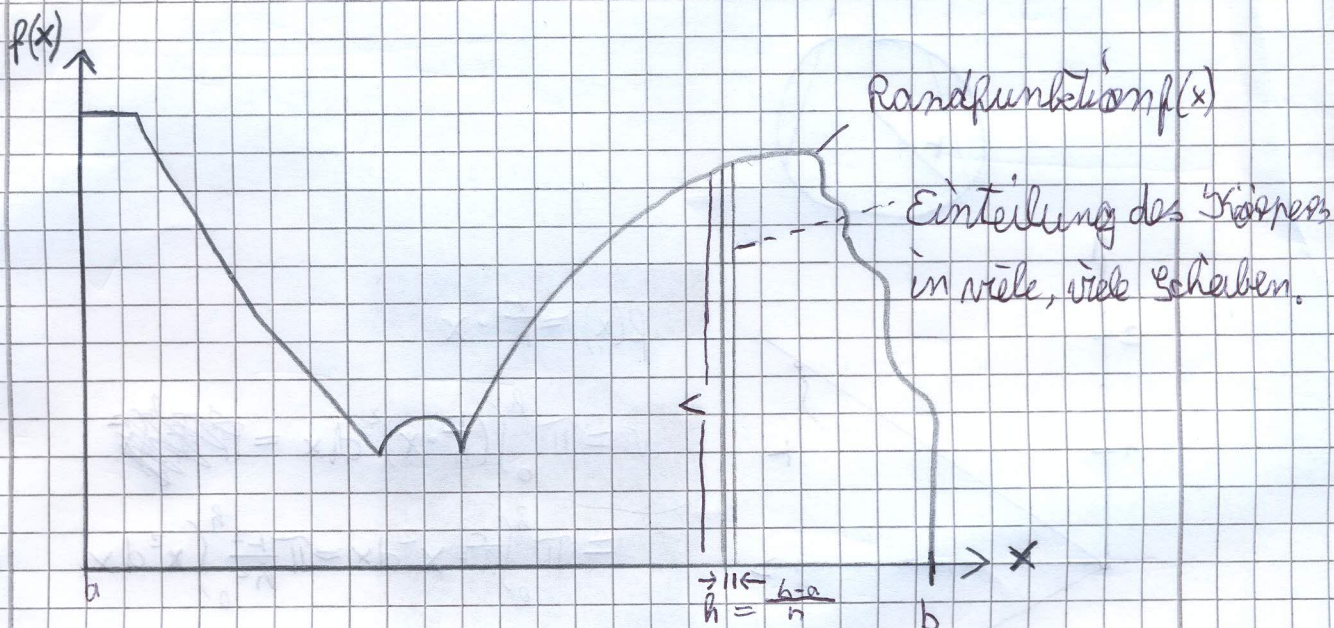 f(x)
Randfunktion f(x)
Einteilung des Körpers
in viele, viele Scheiben.
r
x
a
h = b-a
n
b